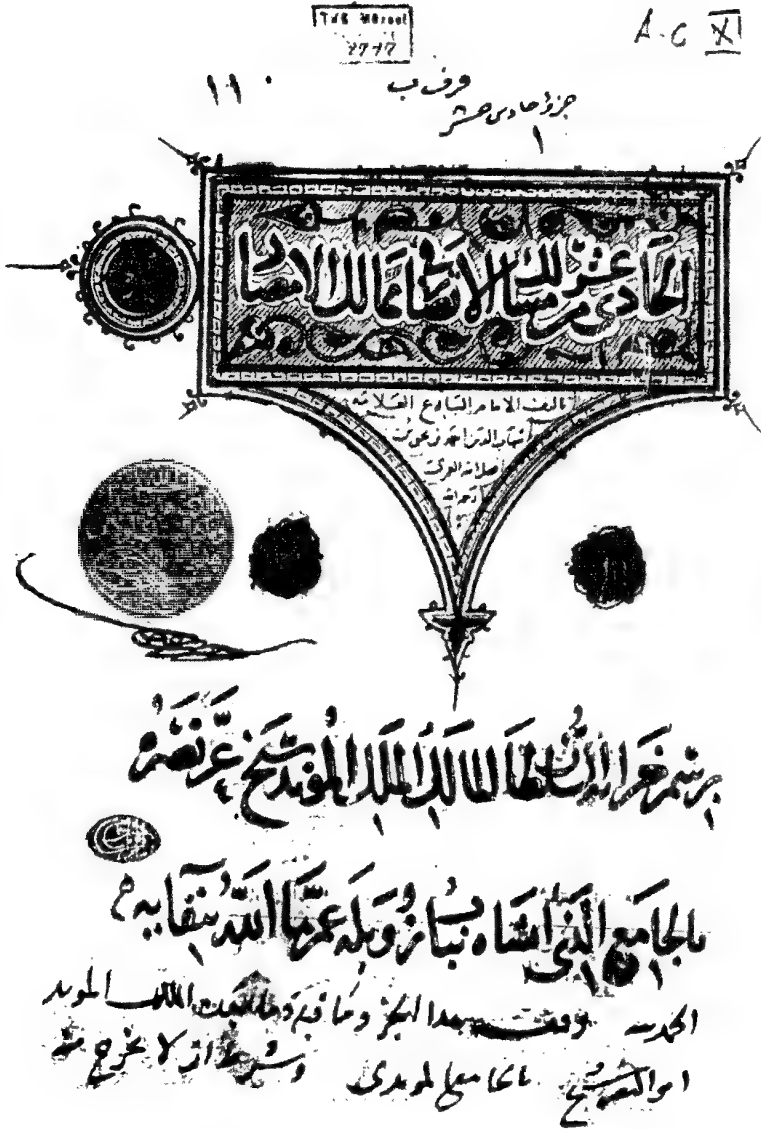 A-C XI
١١٠
جزؤ حادى عشر
١
الحادى عشر من مسالك الأبصار فى ممالك الامصار
تأليف الامام البارع العلامة
شهاب الدين احمد بن
فضل الله العمرى
رحمه الله
برسم خزانة السلطان المالك الملك المؤيد شيخ عز نصره
بالجامع الذى انشاه بباب زويلة عمرها الله ببقايه
الحمد لله وقف هذا الجزء وما قبله وما بعده الملك المويد
ابو النصر شيخ بالجامع المويدى وشرط ان لا يخرج منه